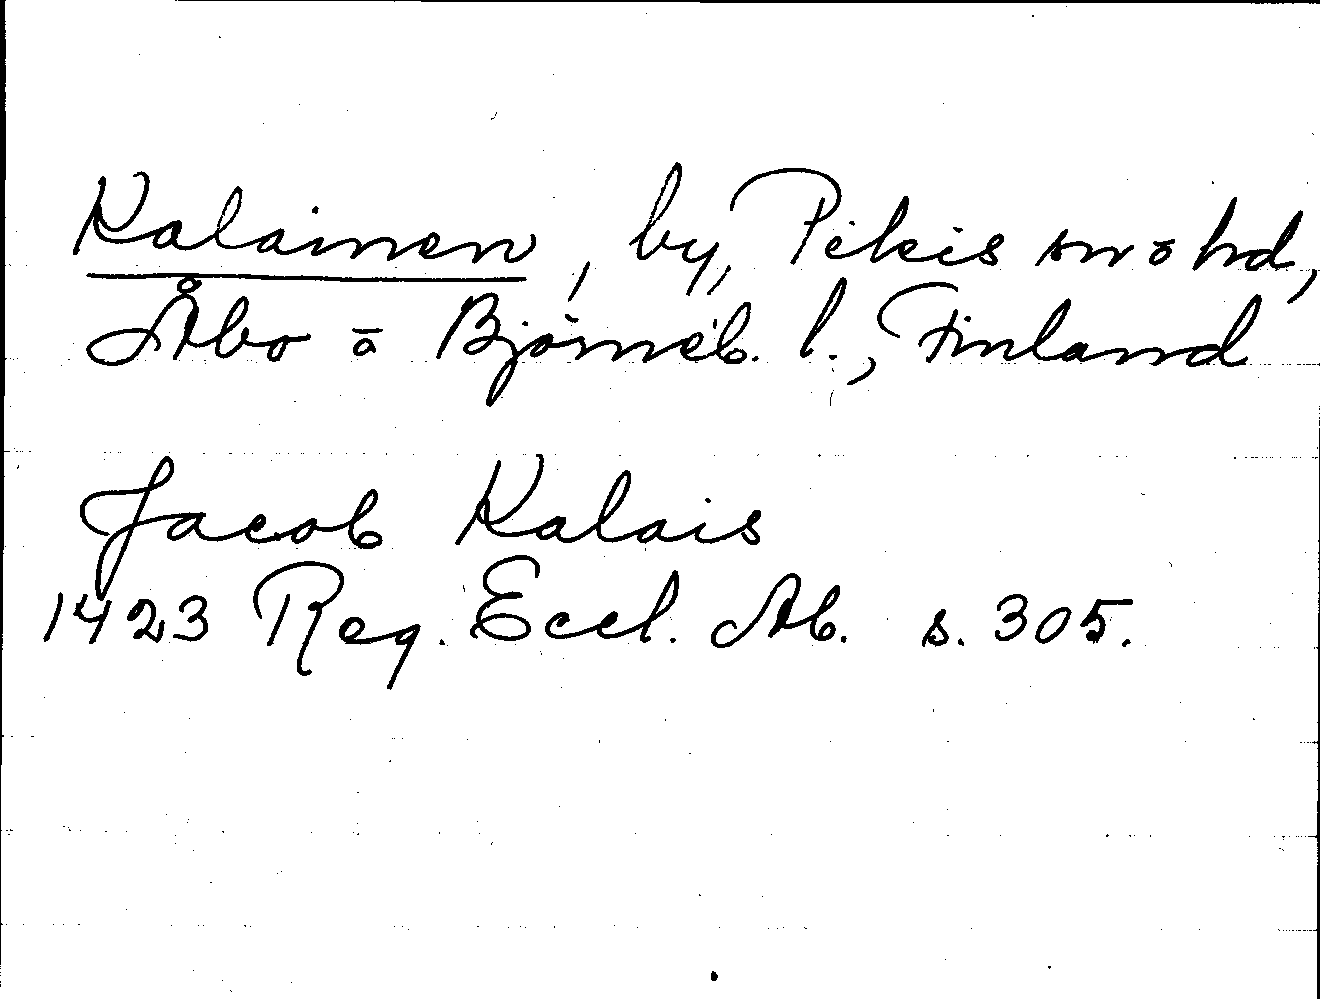 Kalainen, by, Pikis sn o hd,
Åbo o Björneb. l., Finland
Jacob Kalais
1423 Reg. Eccl. Ab. s. 305.